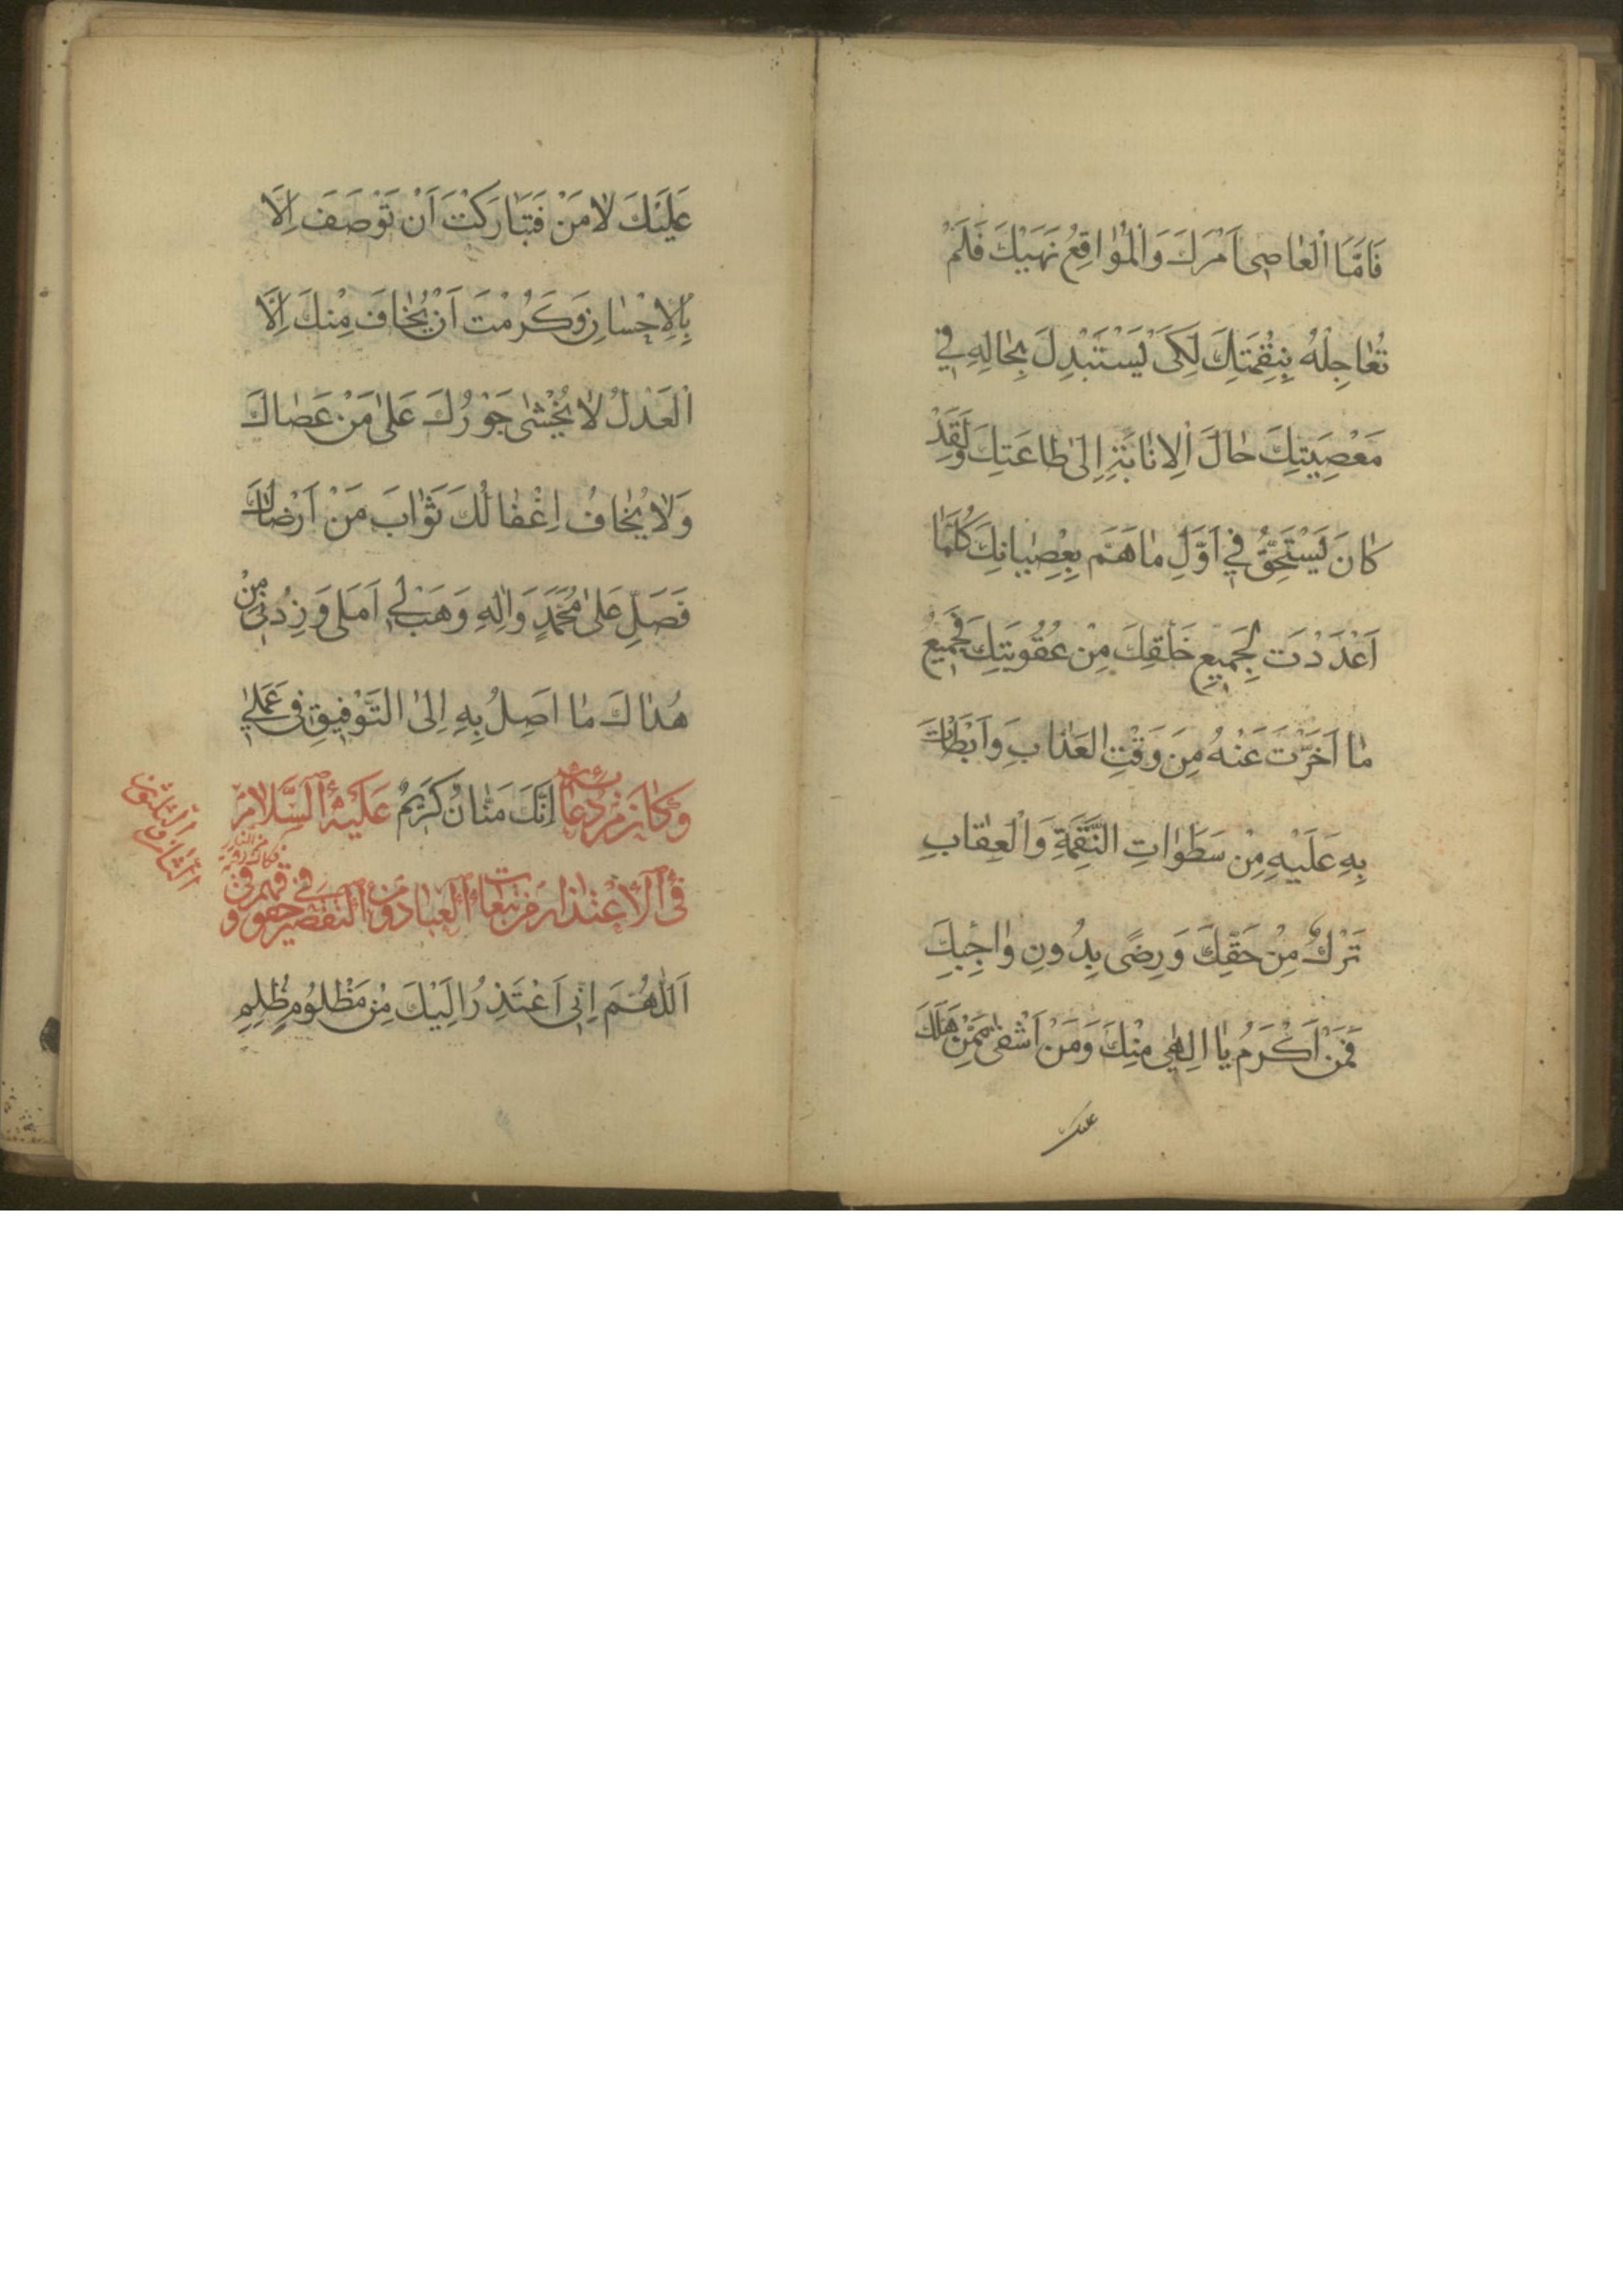 فَاَمَّا الْعاصى اَمْرَكَ وَالْمُواقِعُ نَهْيَكَ فَلَمْ
تُعاجِلْهُ بِنِقْمَتِكَ لِكَىْ يَسْتَبْدِلَ بِحالِهِ فِي
مَعْصِيَتِكَ حالَ الْاِنابَةِ اِلى طاعَتِكَ وَلَقَدْ
كانَ يَسْتَحِقُّ فِي اَوَّلِ ما هَمَّ بِعِصْيانِكَ كُلَّما
اَعْدَدْتَ لِجَميعِ خَلْقِكَ مِنْ عُقُوبَتِكَ فَجَميعُ
ما اَخَّرْتَ عَنْهُ مِنَ وَقْتِ الْعَذابِ وَاَبْطَاْتَ
بِهِ عَلَيْهِ مِنْ سَطَواتِ النَّقِمَةِ وَالْعِقابِ
تَرْكٌ مِنْ حَقِّكَ وَرِضًى بِدُونِ واجِبِكَ
فَمَنْ اَكْرَمُ يا اِلهى مِنْكَ وَمَنْ اَشْقى مِمَّنْ هَلَكَ
عليك
عَلَيْكَ لا مَنْ فَتَبارَكْتَ اَنْ تُوْصَفَ اِلّا
بِالْاِحْسانِ وَكَرُمْتَ اَنْ يُخافَ مِنْكَ اِلَّا
الْعَدْلُ لا يُخْشى جَوْرُكَ عَلى مَنْ عَصاكَ
وَلا يُخافُ اِغْفالُكَ ثَوابَ مَنْ اَرْضاكَ
فَصَلِّ عَلى مُحَمَّدٍ وَالِهِ وَهَبْ لِي اَمَلى وَزِدْنى مِنْ
هُداكَ ما اَصِلُ بِهِ اِلىَ التَّوْفيقِ فى عَمَلي
وَكانَ مِنْ دُعائِهِ اِنَّكَ مَنّانٌ كَرِيمٌ عَلَيْهِ السَّلامُ
فِى الْاِعْتِذارِ مِنْ تَبِعاتِ الْعِبادِ وَمِنَ التَّقْصيرِ فِي حقوقهم وفى
فكاك رقبته من النار
الثامن والثلثون
اَللّهُمَّ اِنّى اَعْتَذِرُ اِلَيْكَ مِنْ مَظْلُومٍ ظُلِمَ